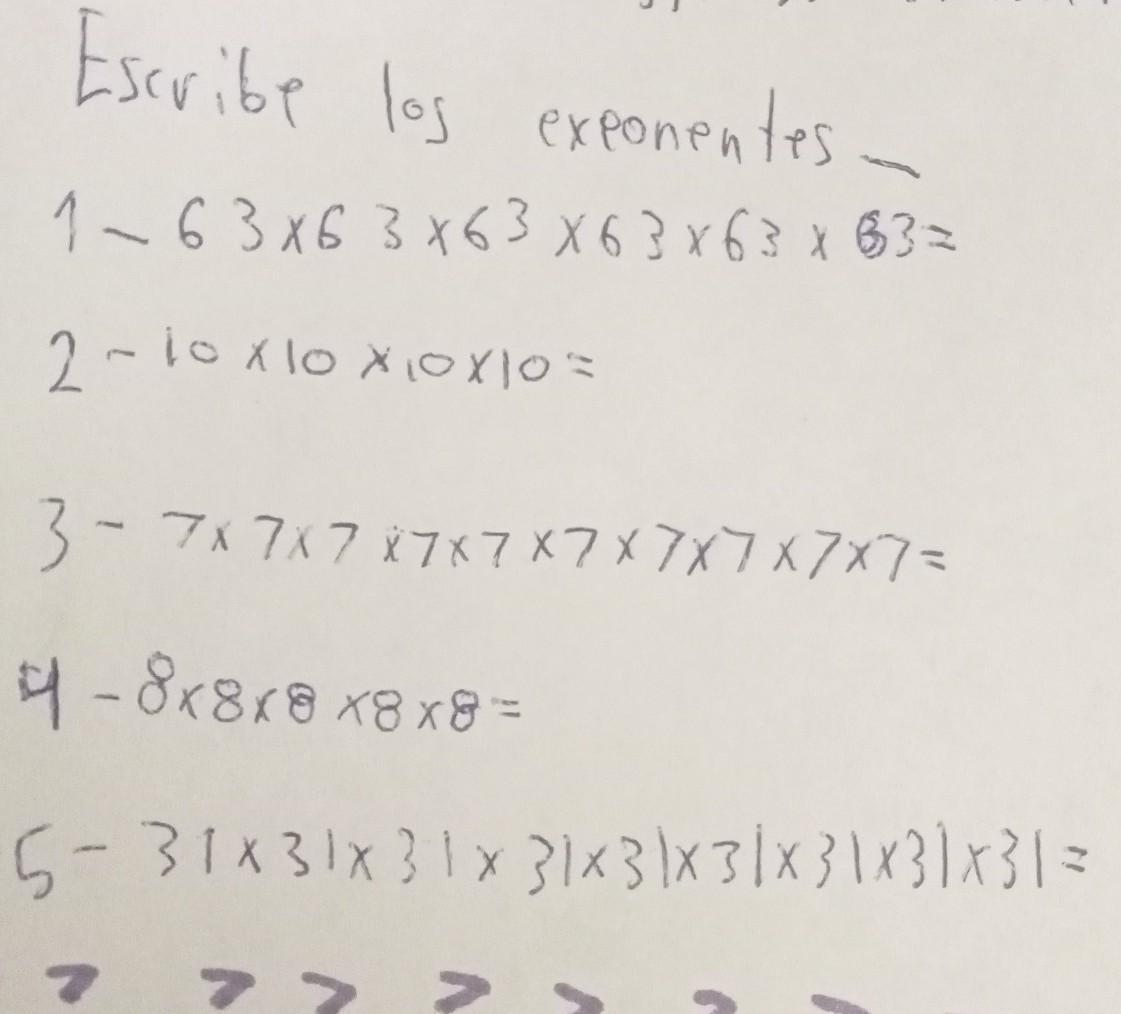 Escribe los exponentes_
1-63x63x63x63x63x63=
2-10x10x10x10=
3-7x7x7x7x7x7x7x7x7x7=
4-8x8x8x8x8=
5-31x31x31x31x31x31x31x31x31=